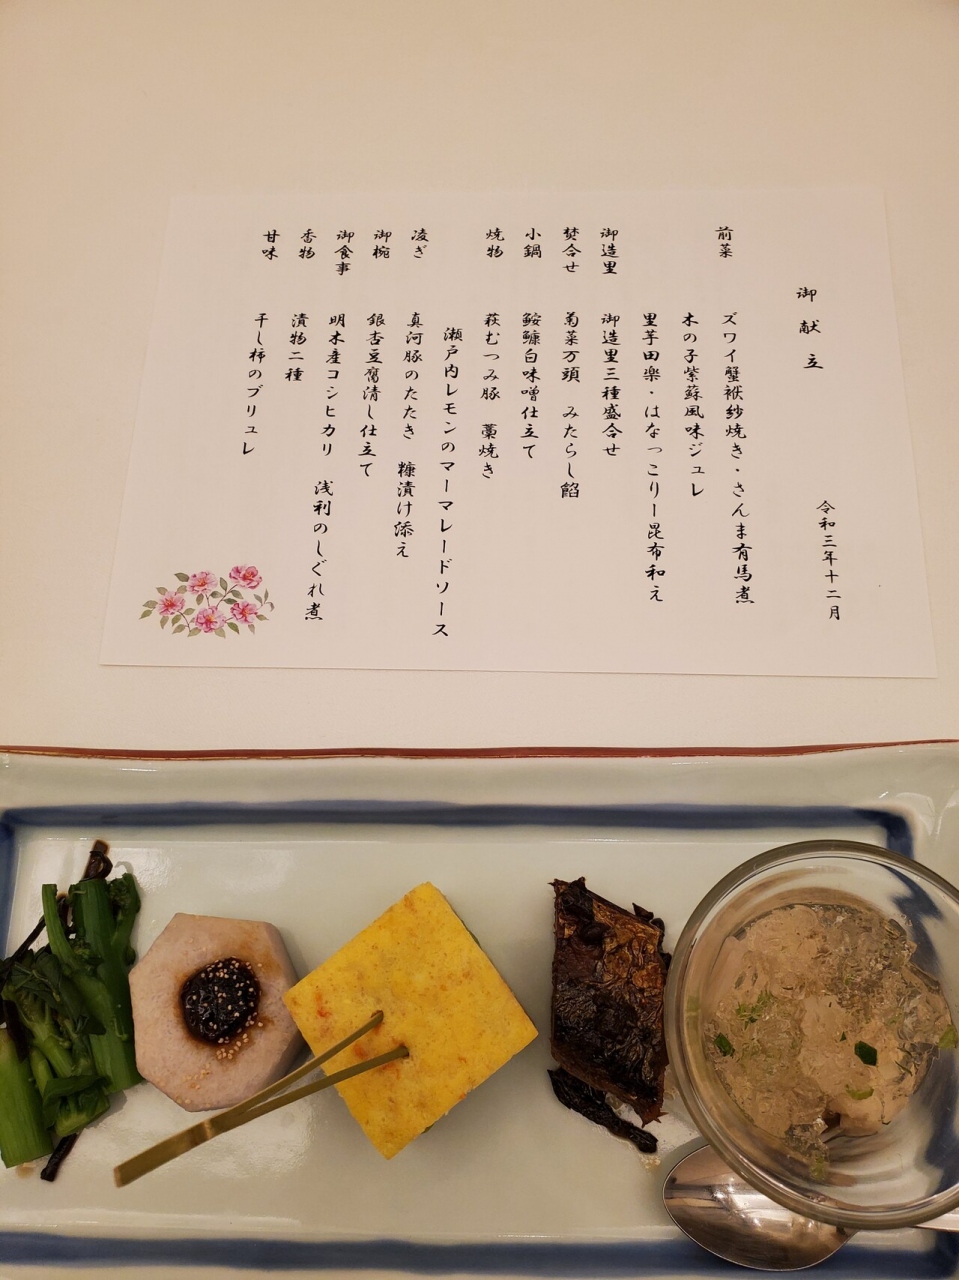 御献立
令和三年十二月
前菜 ズワイ蟹袱紗焼き・さんま有馬煮
木の子紫蘇風味ジュレ
里芋田楽・はなっこりー昆布和え
御造里 御造里三種盛合せ
焚合せ 菊菜万頭 みたらし餡
小鍋 鮟鱇白味噌仕立て
焼物 萩むつみ豚 藁焼き
瀬戸内レモンのマーマレードソース
凌ぎ 真河豚のたたき 糠漬け添え
御椀 銀杏豆腐清し仕立て
御食事 明木産コシヒカリ 浅利のしぐれ煮
香物 漬物二種
甘味 干し柿のブリュレ